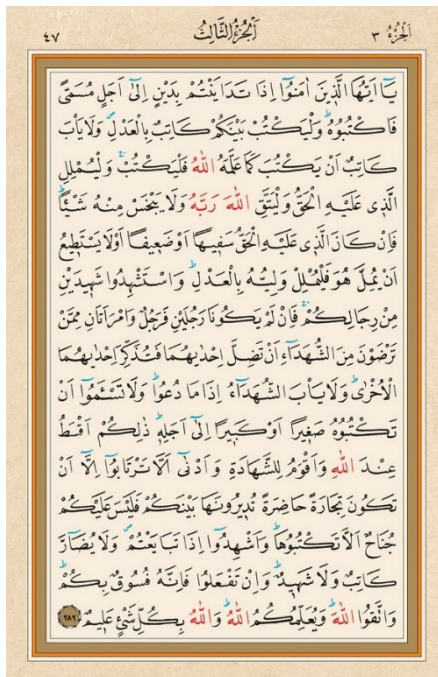 اَلْجُزْءُ ٣ اَلْجُزْءُ الثَّالِثُ ٤٧
يَٓا اَيُّهَا الَّذ۪ينَ اٰمَنُٓوا اِذَا تَدَايَنْتُمْ بِدَيْنٍ اِلٰٓى اَجَلٍ مُسَمًّى
فَاكْتُبُوهُۜ وَلْيَكْتُبْ بَيْنَكُمْ كَاتِبٌ بِالْعَدْلِۖ وَلَا يَأْبَ
كَاتِبٌ اَنْ يَكْتُبَ كَمَا عَلَّمَهُ اللّٰهُ فَلْيَكْتُبْۚ وَلْيُمْلِلِ
الَّذ۪ي عَلَيْهِ الْحَقُّ وَلْيَتَّقِ اللّٰهَ رَبَّهُ وَلَا يَبْخَسْ مِنْهُ شَيْـٔاًۜ
فَاِنْ كَانَ الَّذ۪ي عَلَيْهِ الْحَقُّ سَف۪يهاً اَوْ ضَع۪يفاً اَوْ لَا يَسْتَط۪يعُ
اَنْ يُمِلَّ هُوَ فَلْيُمْلِلْ وَلِيُّهُ بِالْعَدْلِۜ وَاسْتَشْهِدُوا شَه۪يدَيْنِ
مِنْ رِجَالِكُمْۚ فَاِنْ لَمْ يَكُونَا رَجُلَيْنِ فَرَجُلٌ وَامْرَاَتَانِ مِمَّنْ
تَرْضَوْنَ مِنَ الشُّهَدَٓاءِ اَنْ تَضِلَّ اِحْدٰيهُمَا فَتُذَكِّرَ اِحْدٰيهُمَا
الْاُخْرٰىۜ وَلَا يَأْبَ الشُّهَدَٓاءُ اِذَا مَا دُعُواۜ وَلَا تَسْـَٔمُٓوا اَنْ
تَكْتُبُوهُ صَغ۪يراً اَوْ كَب۪يراً اِلٰٓى اَجَلِه۪ۜ ذٰلِكُمْ اَقْسَطُ
عِنْدَ اللّٰهِ وَاَقْوَمُ لِلشَّهَادَةِ وَاَدْنٰٓى اَلَّا تَرْتَابُٓوا اِلَّٓا اَنْ
تَكُونَ تِجَارَةً حَاضِرَةً تُد۪يرُونَهَا بَيْنَكُمْ فَلَيْسَ عَلَيْكُمْ
جُنَاحٌ اَلَّا تَكْتُبُوهَاۜ وَاَشْهِدُٓوا اِذَا تَبَايَعْتُمْۖ وَلَا يُضَٓارَّ
كَاتِبٌ وَلَا شَه۪يدٌۜ وَاِنْ تَفْعَلُوا فَاِنَّهُ فُسُوقٌ بِكُمْۜ
وَاتَّقُوا اللّٰهَۜ وَيُعَلِّمُكُمُ اللّٰهُۜ وَاللّٰهُ بِكُلِّ شَيْءٍ عَل۪يمٌ ٢٨٢